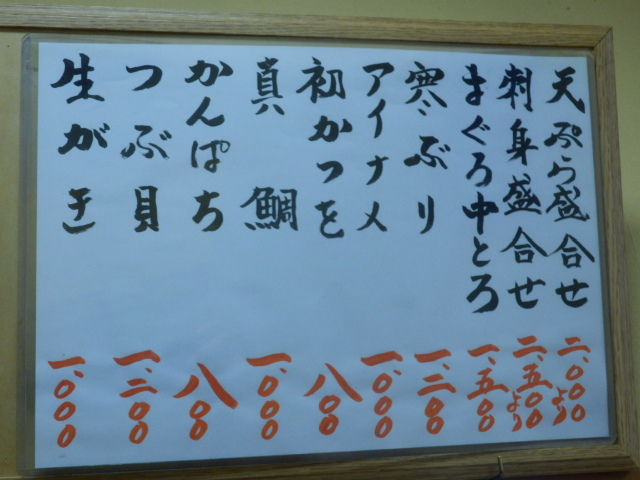 天ぷら盛合せ 二、〇〇〇より
刺身盛合せ 二、五〇〇より
まぐろ中とろ 一、五〇〇
寒ぶり 一、二〇〇
アイナメ 一、〇〇〇
初かつを 八〇〇
真鯛 一、〇〇〇
かんぱち 八〇〇
つぶ貝 一、二〇〇
生がき 一、〇〇〇